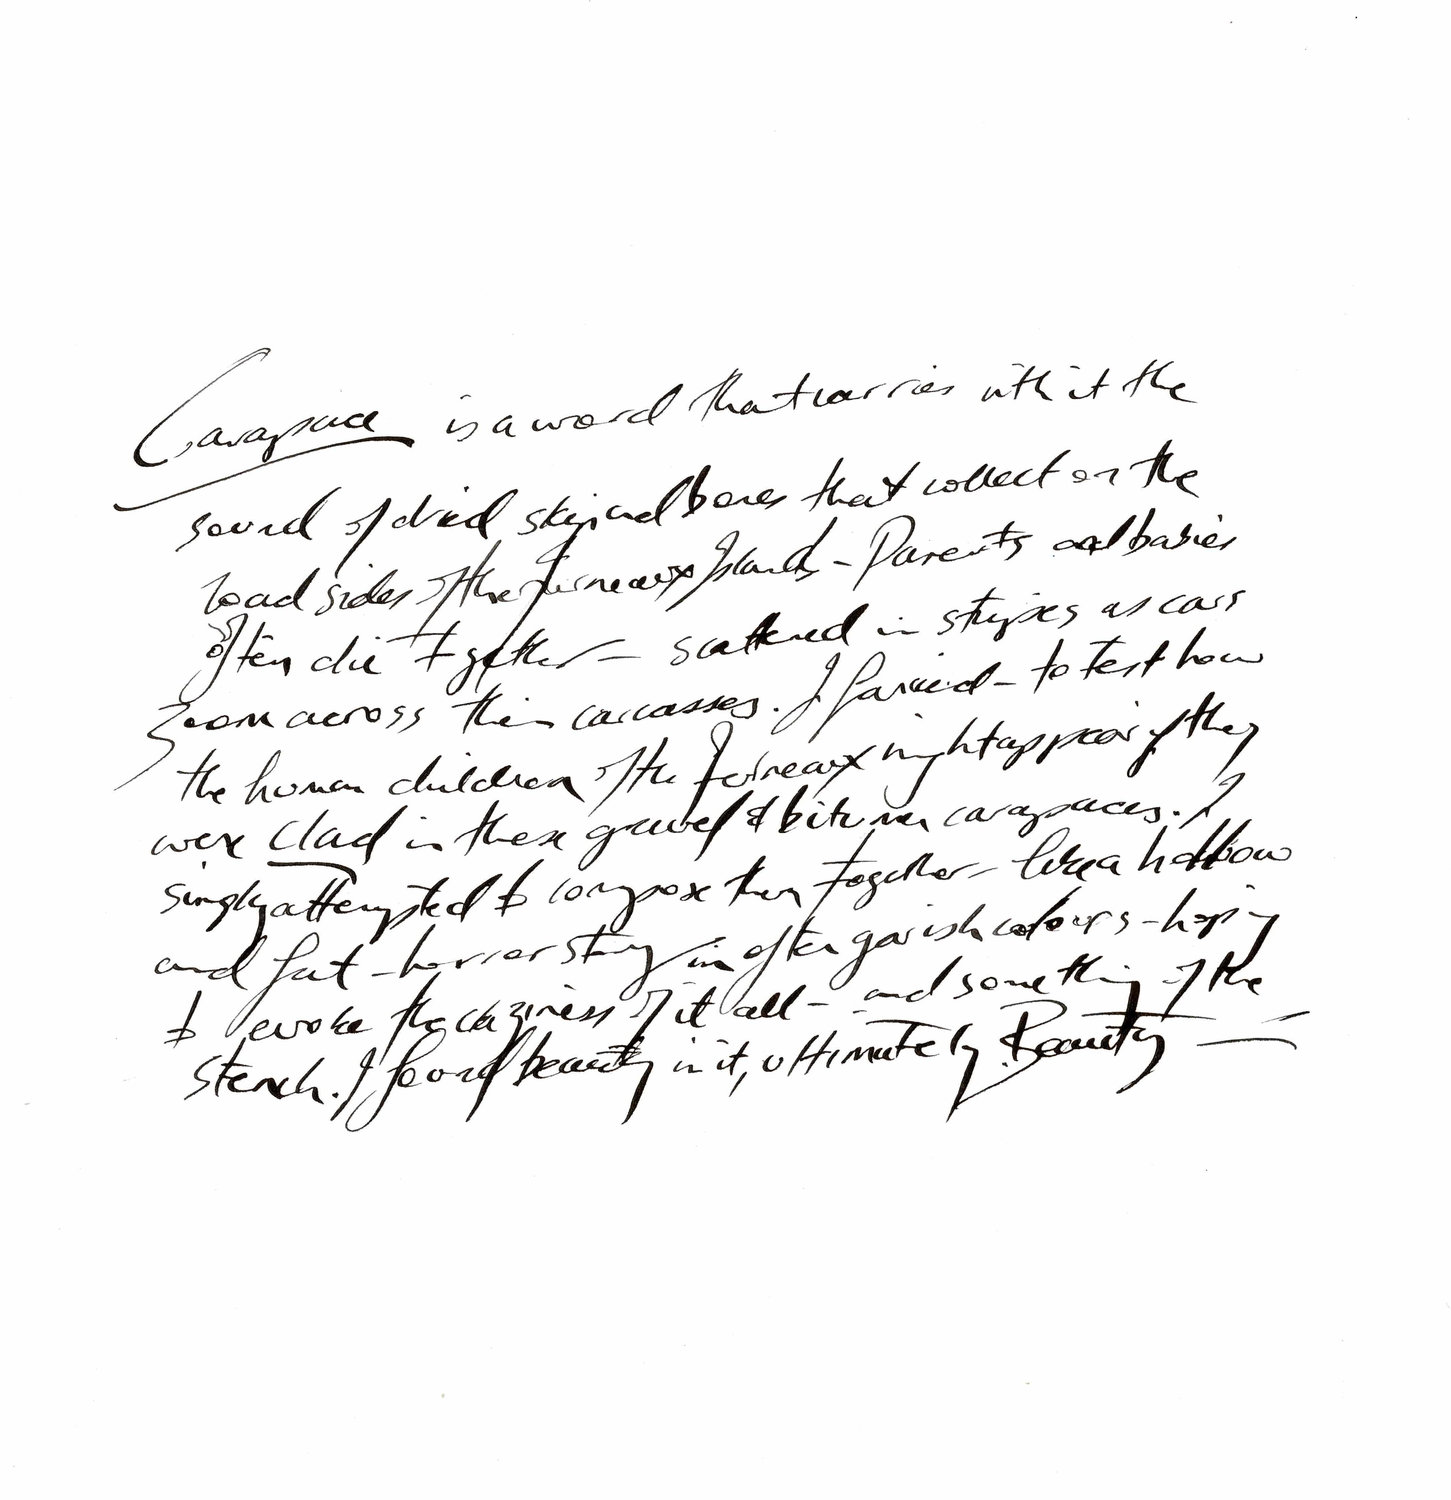 Carapace is a word that carries with it the
sound of dried skin and bones that collect on the
road sides of the Furneaux Islands – Parents and babies
often die together – scattered in stripes as cars
zoom across their carcasses. I fancied – to test how
the human children of the Furneaux might appear if they
were clad in these gravel & bitumen carapaces. I
simply attempted to compose them together – like a hollow
and fat – horror story in often garish colours – hoping
to evoke the craziness of it all – and something of the
stench. I found beauty in it, ultimately Beauty –